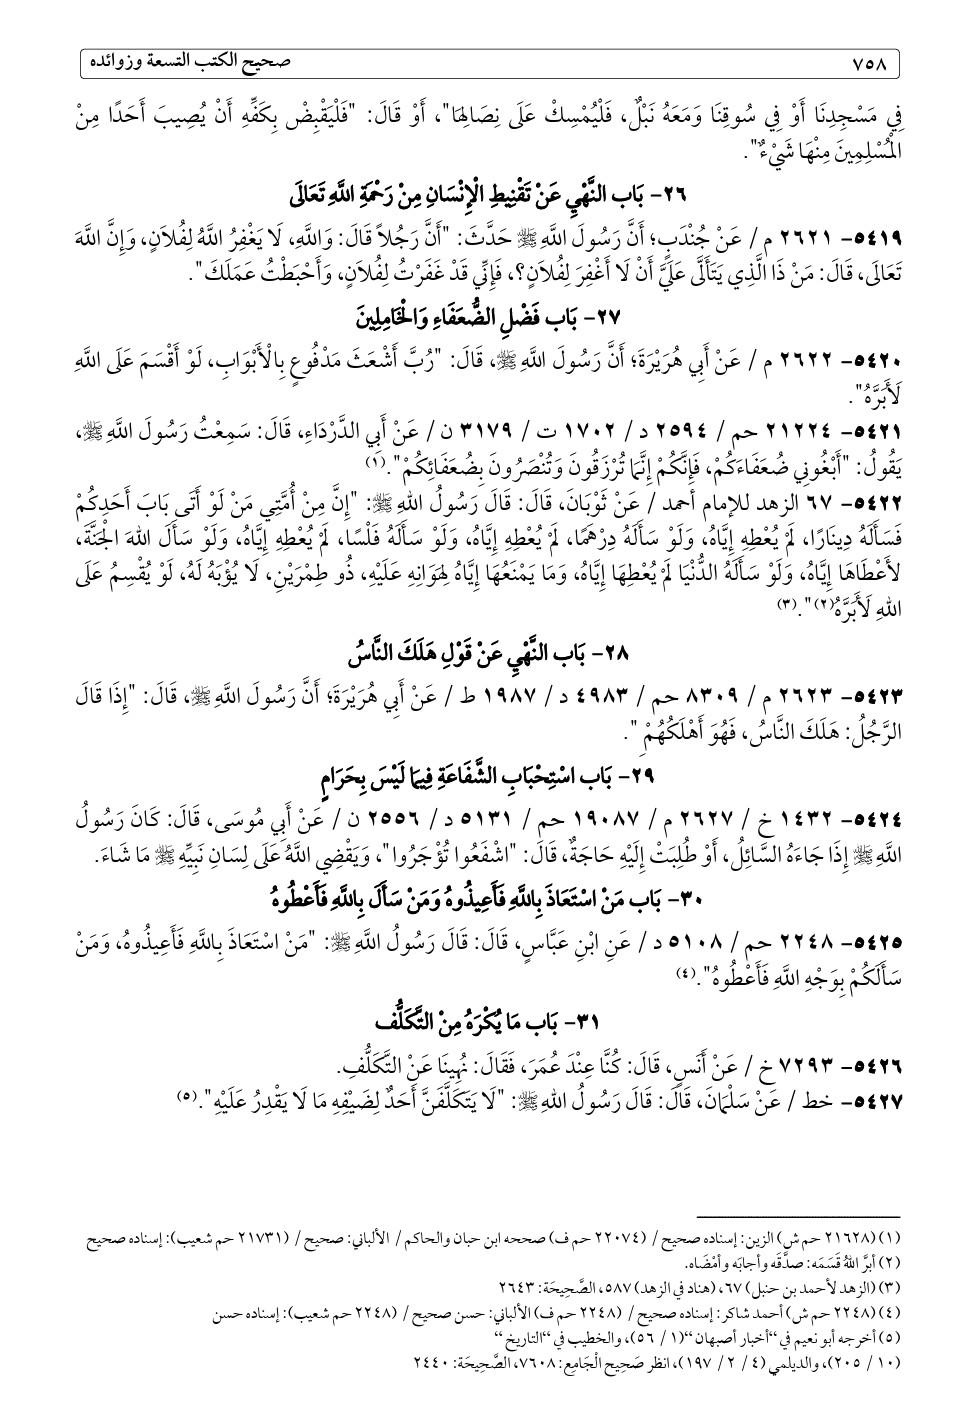 ٧٥٨ صحيح الكتب التسعة وزوائده
فِي مَسْجِدِنَا أَوْ فِي سُوقِنَا وَمَعَهُ نَبْلٌ، فَلْيُمْسِكْ عَلَى نِصَالِهَا"، أَوْ قَالَ: "فَلْيَقْبِضْ بِكَفِّهِ أَنْ يُصِيبَ أَحَدًا مِنْ
الْمُسْلِمِينَ مِنْهَا شَيْءٌ".
٢٦- بَاب النَّهْيِ عَنْ تَقْنِيطِ الْإِنْسَانِ مِنْ رَحْمَةِ اللَّهِ تَعَالَى
٥٤١٩- ٢٦٢١ م / عَنْ جُنْدَبٍ؛ أَنَّ رَسُولَ اللَّهِ ﷺ حَدَّثَ: "أَنَّ رَجُلاً قَالَ: وَاللَّهِ، لَا يَغْفِرُ اللَّهُ لِفُلَانٍ، وَإِنَّ اللَّهَ
تَعَالَى، قَالَ: مَنْ ذَا الَّذِي يَتَأَلَّى عَلَيَّ أَنْ لَا أَغْفِرَ لِفُلَانٍ؟، فَإِنِّي قَدْ غَفَرْتُ لِفُلَانٍ، وَأَحْبَطْتُ عَمَلَكَ".
٢٧- بَاب فَضْلِ الضُّعَفَاءِ وَالْخَامِلِينَ
٥٤٢٠- ٢٦٢٢ م / عَنْ أَبِي هُرَيْرَةَ؛ أَنَّ رَسُولَ اللَّهِ ﷺ، قَالَ: "رُبَّ أَشْعَثَ مَدْفُوعٍ بِالْأَبْوَابِ، لَوْ أَقْسَمَ عَلَى اللَّهِ
لَأَبَرَّهُ".
٥٤٢١- ٢١٢٢٤ حم / ٢٥٩٤ د / ١٧٠٢ ت / ٣١٧٩ ن / عَنْ أَبِي الدَّرْدَاءِ، قَالَ: سَمِعْتُ رَسُولَ اللَّهِ ﷺ،
يَقُولُ: "أَبْغُونِي ضُعَفَاءَكُمْ، فَإِنَّكُمْ إِنَّمَا تُرْزَقُونَ وَتُنْصَرُونَ بِضُعَفَائِكُمْ".(١)
٥٤٢٢- ٦٧ الزهد للإمام أحمد / عَنْ ثَوْبَانَ، قَالَ: قَالَ رَسُولُ اللهِ ﷺ: "إِنَّ مِنْ أُمَّتِي مَنْ لَوْ أَتَى بَابَ أَحَدِكُمْ
فَسَأَلَهُ دِينَارًا، لَمْ يُعْطِهِ إِيَّاهُ، وَلَوْ سَأَلَهُ دِرْهَمًا، لَمْ يُعْطِهِ إِيَّاهُ، وَلَوْ سَأَلَهُ فَلْسًا، لَمْ يُعْطِهِ إِيَّاهُ، وَلَوْ سَأَلَ اللهَ الْجَنَّةَ،
لأَعْطَاهَا إِيَّاهُ، وَلَوْ سَأَلَهُ الدُّنْيَا لَمْ يُعْطِهَا إِيَّاهُ، وَمَا يَمْنَعُهَا إِيَّاهُ لِهَوَانِهِ عَلَيْهِ، ذُو طِمْرَيْنِ، لَا يُؤْبَهُ لَهُ، لَوْ يُقْسِمُ عَلَى
اللهِ لَأَبَرَّهُ(٢)".(٣)
٢٨- بَاب النَّهْيِ عَنْ قَوْلِ هَلَكَ النَّاسُ
٥٤٢٣- ٢٦٢٣ م / ٨٣٠٩ حم / ٤٩٨٣ د / ١٩٨٧ ط / عَنْ أَبِي هُرَيْرَةَ؛ أَنَّ رَسُولَ اللَّهِ ﷺ، قَالَ: "إِذَا قَالَ
الرَّجُلُ: هَلَكَ النَّاسُ، فَهُوَ أَهْلَكُهُمْ ".
٢٩- بَاب اسْتِحْبَابِ الشَّفَاعَةِ فِيمَا لَيْسَ بِحَرَامٍ
٥٤٢٤- ١٤٣٢ خ / ٢٦٢٧ م / ١٩٠٨٧ حم / ٥١٣١ د / ٢٥٥٦ ن / عَنْ أَبِي مُوسَى، قَالَ: كَانَ رَسُولُ
اللَّهِ ﷺ إِذَا جَاءَهُ السَّائِلُ، أَوْ طُلِبَتْ إِلَيْهِ حَاجَةٌ، قَالَ: "اشْفَعُوا تُؤْجَرُوا"، وَيَقْضِي اللَّهُ عَلَى لِسَانِ نَبِيِّهِ ﷺ مَا شَاءَ.
٣٠- بَاب مَنْ اسْتَعَاذَ بِاللَّهِ فَأَعِيذُوهُ وَمَنْ سَأَلَ بِاللَّهِ فَأَعْطُوهُ
٥٤٢٥- ٢٢٤٨ حم / ٥١٠٨ د / عَنِ ابْنِ عَبَّاسٍ، قَالَ: قَالَ رَسُولُ اللَّهِ ﷺ: "مَنْ اسْتَعَاذَ بِاللَّهِ فَأَعِيذُوهُ، وَمَنْ
سَأَلَكُمْ بِوَجْهِ اللَّهِ فَأَعْطُوهُ".(٤)
٣١- بَاب مَا يُكْرَهُ مِنْ التَّكَلُّف
٥٤٢٦- ٧٢٩٣ خ / عَنْ أَنَسٍ، قَالَ: كُنَّا عِنْدَ عُمَرَ، فَقَالَ: نُهِينَا عَنْ التَّكَلُّفِ.
٥٤٢٧- خط / عَنْ سَلْمَانَ، قَالَ: قَالَ رَسُولُ اللهِ ﷺ: "لَا يَتَكَلَّفَنَّ أَحَدٌ لِضَيْفِهِ مَا لَا يَقْدِرُ عَلَيْهِ".(٥)
(١) (٢١٦٢٨ حم ش) الزين: إسناده صحيح / (٢٢٠٧٤ حم ف) صححه ابن حبان والحاكم / الألباني: صحيح / (٢١٧٣١ حم شعيب): إسناده صحيح
(٢) أبَرَّ اللهُ قَسَمَه: صدَّقَه وأجابَه وأمْضَاه.
(٣) (الزهد لأحمد بن حنبل) ٦٧، (هناد في الزهد) ٥٨٧، الصَّحِيحَة: ٢٦٤٣
(٤) (٢٢٤٨ حم ش) أحمد شاكر: إسناده صحيح / (٢٢٤٨ حم ف) الألباني: حسن صحيح / (٢٢٤٨ حم شعيب): إسناده حسن
(٥) أخرجه أبو نعيم في "أخبار أصبهان" (١ / ٥٦)، والخطيب في "التاريخ"
(١٠ / ٢٠٥)، والديلمي (٤ / ٢ / ١٩٧)، انظر صَحِيح الْجَامِع: ٧٦٠٨، الصَّحِيحَة: ٢٤٤٠